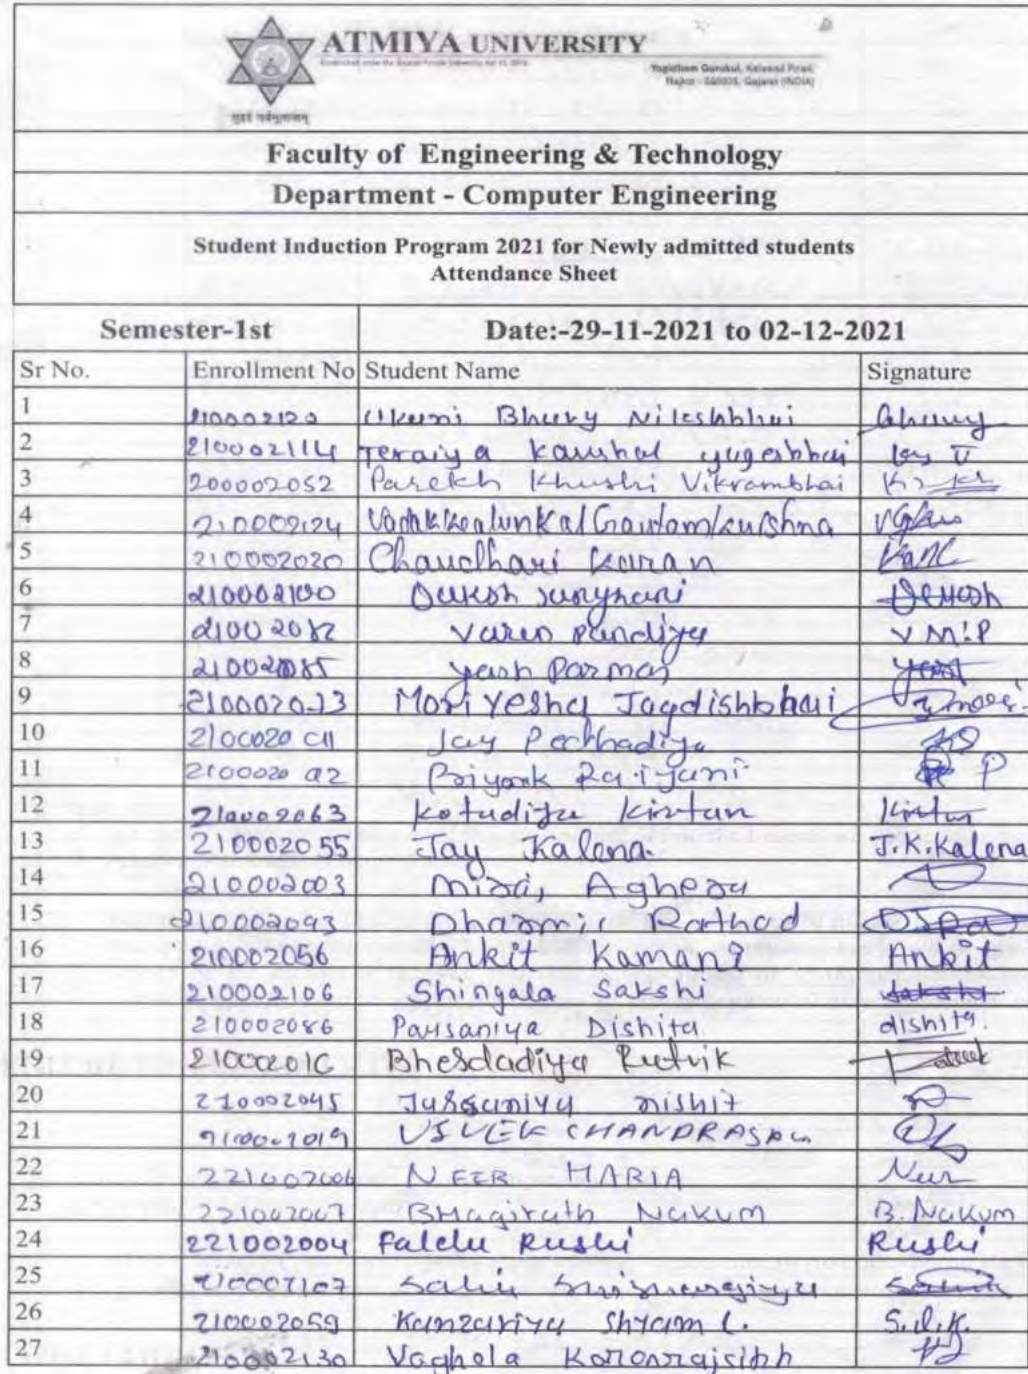 ATMIYA UNIVERSITY
Yogidham Gurukul, Kalawad Road,
Rajkot - 360005, Gujarat (INDIA)
Faculty of Engineering & Technology
Department - Computer Engineering
Student Induction Program 2021 for Newly admitted students
Attendance Sheet
Semester-1st Date:-29-11-2021 to 02-12-2021
Sr No. Enrollment No Student Name Signature
1 210002120 Ukani Bhuvy Nileshbhai Bhuvy
2 210002114 Teraiya Kaushal yugeshbhai
3 200002052 Parekh Khushi Vikrambhai
4 210002124
5 210002020 Chaudhari Karan
6 210002100 Devesh
7 21002082 Varen pandiya V M.P
8 21002085 yash Parmar yash
9 Mori Yesha Jagdishbhai
10 Jay Pechhadiya
11 2100020 92 Priyank Raiyani P
12 210002063 Kotudiya Kirtan Kirtan
13 210002055 Jay Kalena J.K.Kalena
14 210002003 Aghera
15 210002093 Dharmi Rathod
16 210002056 Ankit Kamani Ankit
17 210002106 Shingala Sakshi Sakshi
18 210002086 Parsaniya Dishita dishita.
19 21002016 Bhesdadiya Rutvik
20 210002045 nishit
21 VIVEK
22 221002006 NEER MARIA Neer
23 221002007 BHagirath Nakum B. Nakum
24 221002004 Faldu Rushi Rushi
25 210002107
26 210002059 Kanzariya Shyam L. S.L.K.
27 210002130 Vaghela Karanrajsinh